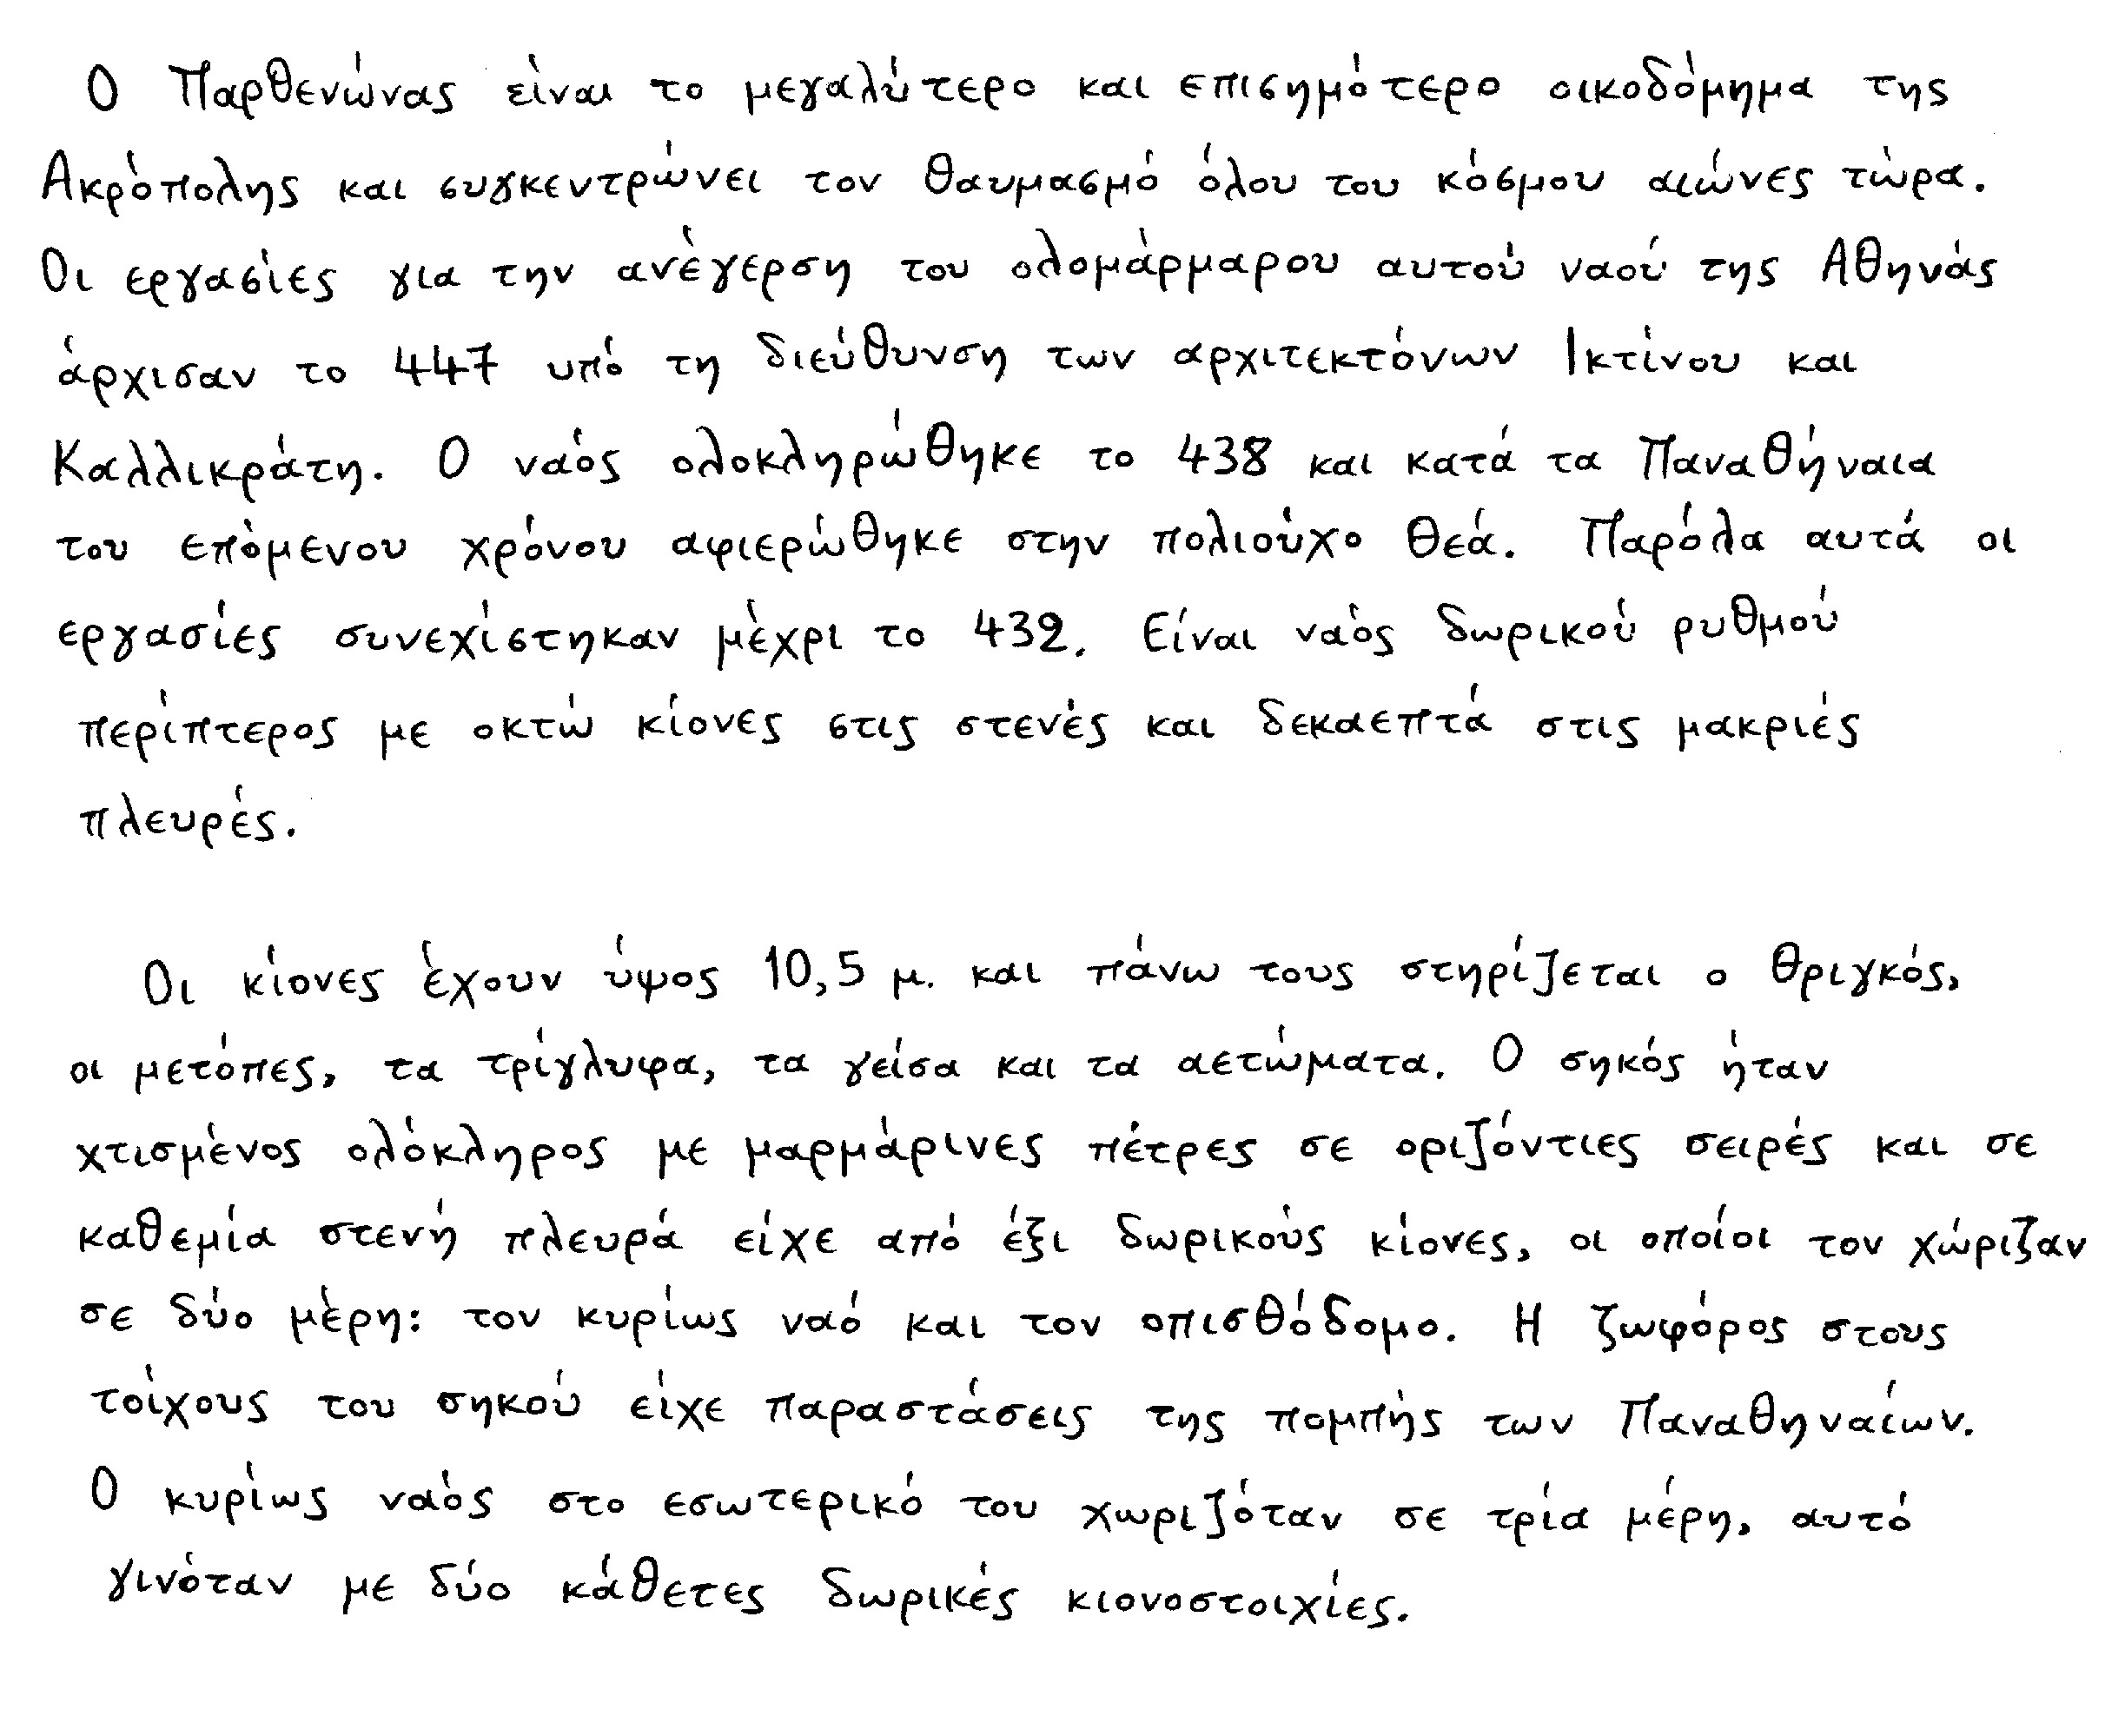 Ο Παρθενώνας είναι το μεγαλύτερο και επισημότερο οικοδόμημα της
Ακρόπολης και συγκεντρώνει τον θαυμασμό όλου του κόσμου αιώνες τώρα.
Οι εργασίες για την ανέγερση του ολομάρμαρου αυτού ναού της Αθηνάς
άρχισαν το 447 υπό τη διεύθυνση των αρχιτεκτόνων Ικτίνου και
Καλλικράτη. Ο ναός ολοκληρώθηκε το 438 και κατά τα Παναθήναια
του επόμενου χρόνου αφιερώθηκε στην πολιούχο θεά. Παρόλα αυτά οι
εργασίες συνεχίστηκαν μέχρι το 432. Είναι ναός δωρικού ρυθμού
περίπτερος με οκτώ κίονες στις στενές και δεκαεπτά στις μακριές
πλευρές.
Οι κίονες έχουν ύψος 10,5 μ. και πάνω τους στηρίζεται ο θριγκός,
οι μετόπες, τα τρίγλυφα, τα γείσα και τα αετώματα. Ο σηκός ήταν
χτισμένος ολόκληρος με μαρμάρινες πέτρες σε οριζόντιες σειρές και σε
καθεμία στενή πλευρά είχε από έξι δωρικούς κίονες, οι οποίοι τον χώριζαν
σε δύο μέρη: τον κυρίως ναό και τον οπισθόδομο. Η ζωφόρος στους
τοίχους του σηκού είχε παραστάσεις της πομπής των Παναθηναίων.
Ο κυρίως ναός στο εσωτερικό του χωριζόταν σε τρία μέρη, αυτό
γινόταν με δύο κάθετες δωρικές κιονοστοιχίες.